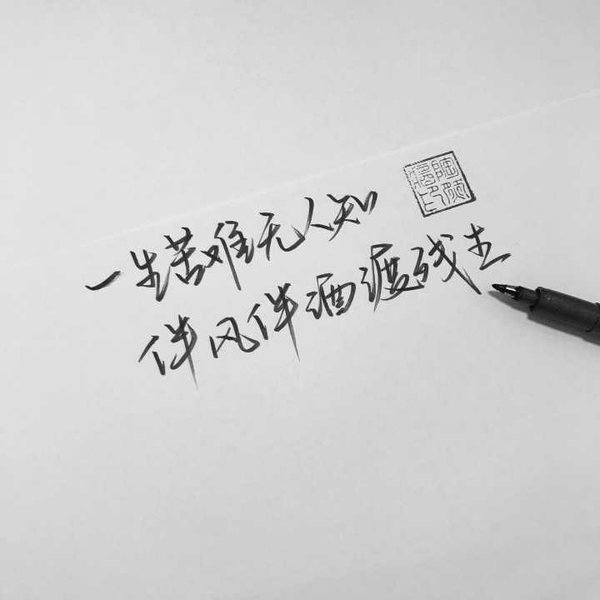 一生苦难无人知
伴风伴酒渡残生